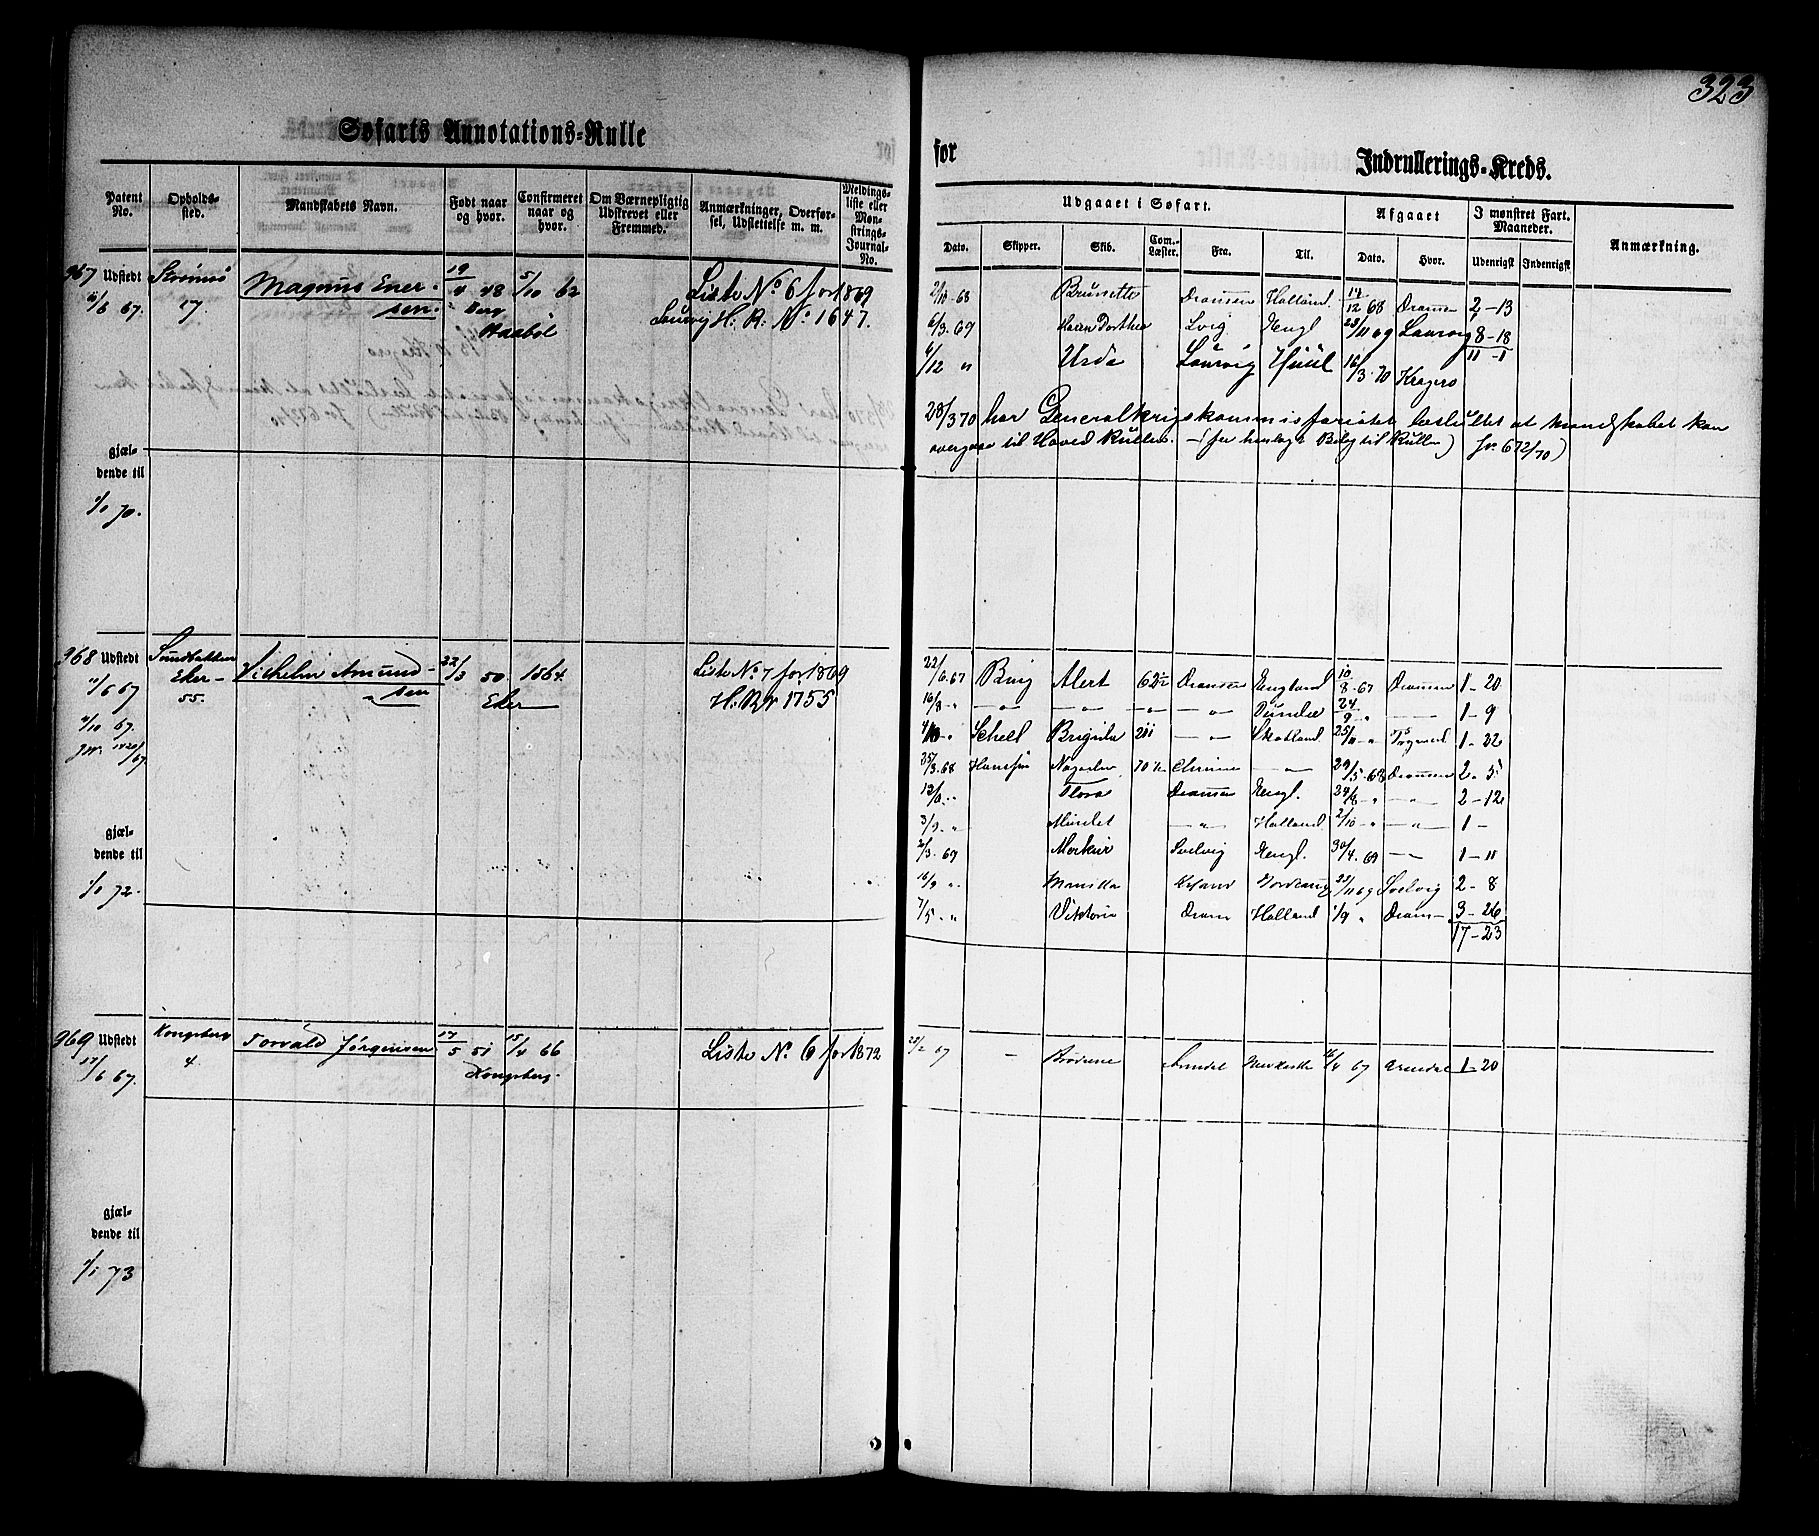 323
Søfarts Annotations-Rulle
for
Indrullerings-Kreds.
Patent No.
Opholdssted.
Mandskabets Navn.
Født naar og hvor.
Confirmeret naar og hvor.
Om Værnepligtig Udskrevet eller Fremmed.
Anmærkninger, Overførsel, Udslettelse m. m.
Meldingsliste eller Mønstrings-Journal-No.
Udgaaet i Søfart.
Afgaaet
I mønstret Fart. Maaneder.
Anmærkning.
Dato.
Skipper.
Skib.
Com.-Læster.
Fra.
Til.
Dato.
Hvor.
Udenrigsk
Indenrigsk
967 Udstedt
Strømsø
17.
Magnus Enersen
19/4 48
Berg
5/10 62
Liste No 6 for 1869
Laurvig H: R: No 1647.
gjældende til
70.
2/10 68 Brunette Dramen Holland 14/12 68 Dramen 2-13
6/3 69 Karen Dorthea Lvig Engl 23/11 69 Laurvig 8-18
11-1
6/12 " Urda Laurvig Hull 16/3 70 Kragerø
23/3 70 har Generalkrigskommissariatet besluttet at Mandskabet kan
overgaa til Hoved Rullen. (se henlagt Bilag til Rullen) Jr. 672/70)
968 Udstedt
11/6 67
Eker
55.
Vilhelm Amundsen
22/3 50.
Eker
1864
Liste No 7 for 1869
H: R No 1755
4/10 67.
gjældende til
72.
22/6 67 Alert Dramen England 10/8 67 Dramen 1-20
16/8 " Dundee 24/9 " 1-9
Scheel 211 Skotland 25/11 " 1-22
25/3 68 29/5 68 Dramen 2-5
Flora Dramen Engl. 24/8 " 2-12
3/9 " Holland 2/10 " 1-
2/3 69 Merkur Svelvig Engl. 30/4 69 1-11
16/9 " 23/11 69 Svelvig 2-8
7/5 " Viktoria Dram Holland 1/9 " Dram 3-26
17-23
969 Udstedt
17/6 67.
Kongsberg
4.
Torvald Jørgensen
17/5 51
Kongsberg.
15/4 66
Liste No. 6 for 1872
gjældende til
1/1 73
28/2 67 - Brødrene Arendal 16/4 67 Arendal 1-20